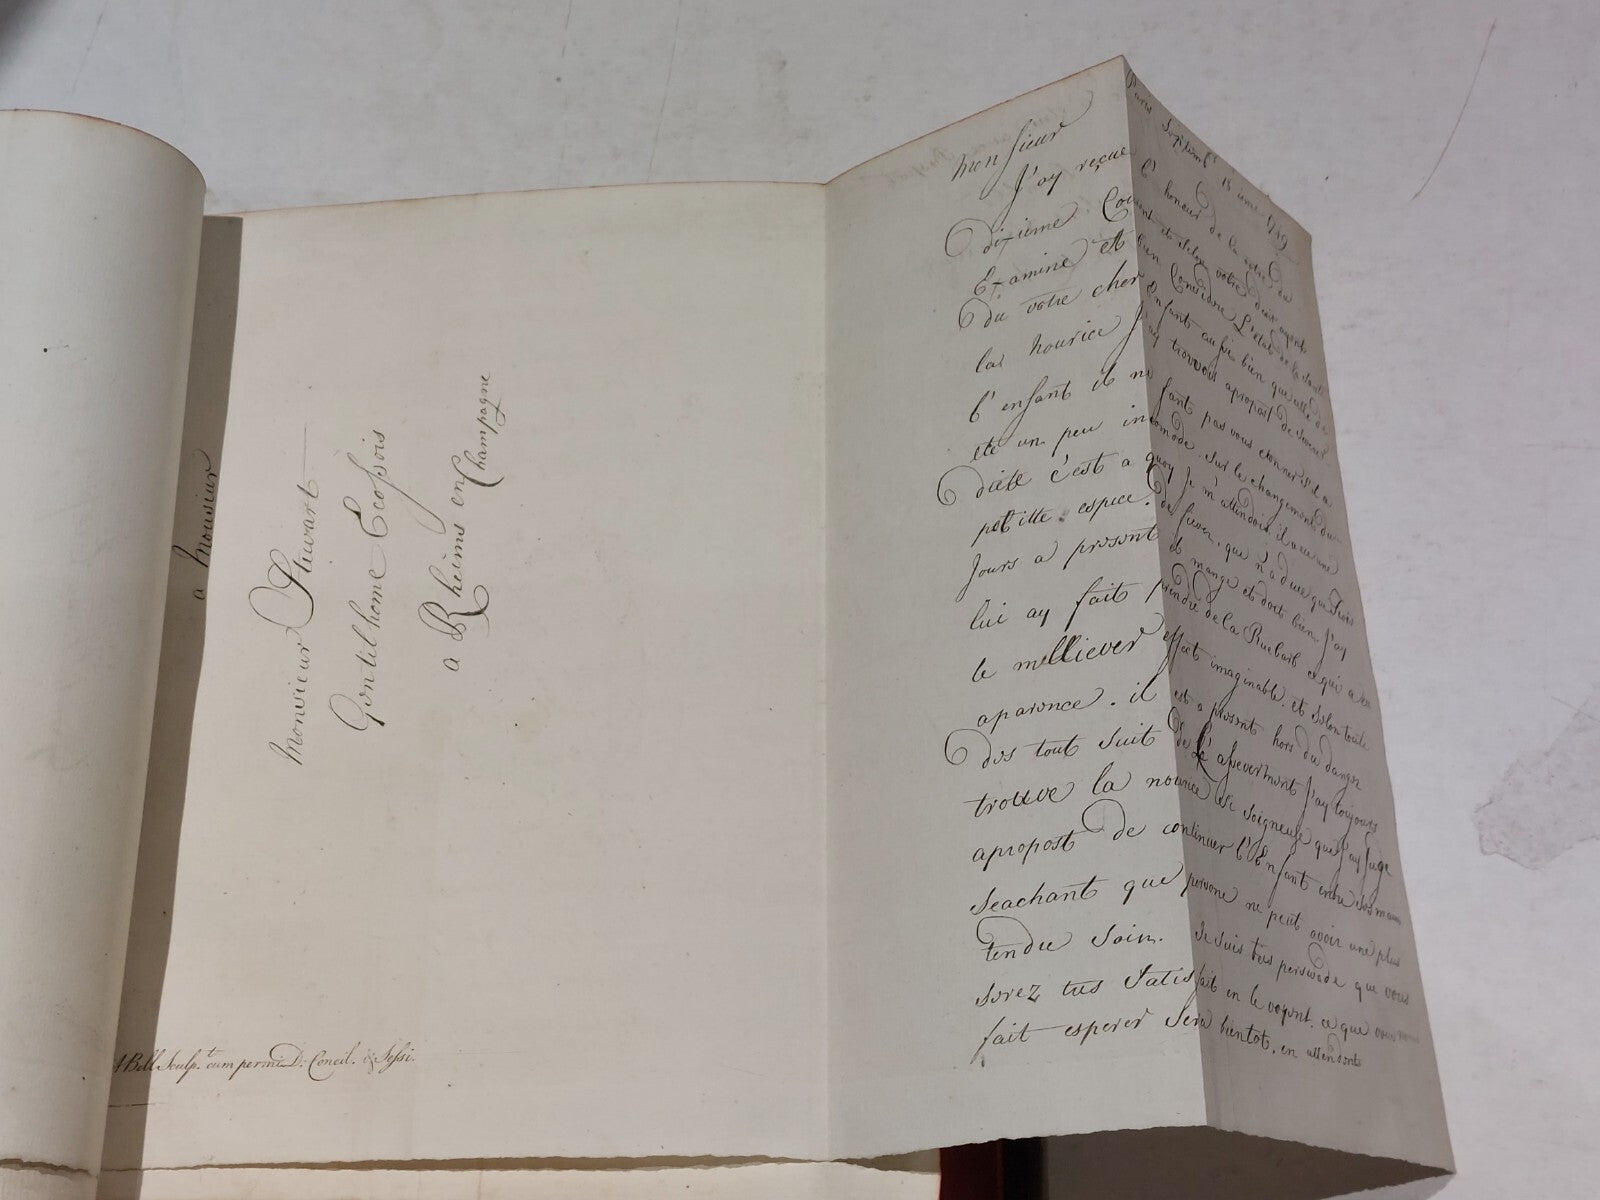 a Monsieur
Monsieur Stuwart
Gentilhome Ecossois
a Rheims en Champagne
A Bell Sculp.t cum permis D: Concil. & Sessi.
Paris 15 1749
Monsieur
J'ay reçue l'honeur de la votre du
dixieme Courent et selon votre
Examine et bien Considere L'etat de la santé
du votre cher Enfant aussi bien que celle de
la nourice J'ay trouvois apropost de sevrer
l'enfant il ne faut pas vous etonner s'il a
ete un peu incomode sur le changement du
diete c'est a quoy Je m'attendois, il a eu une
petitte espece de fiever, que n'a dure que Trois
Jours a present il mange et dort bien, J'ay
lui ay fait prendre de la Rhubarb ce qui a eu
le melliever effect imaginable. et selon toute
aparence. il est a present hors du danger
des tout suit de L'asseverment J'ay toujours
trouve la nourice si soigneuse que J'ay Juge
apropost de continuer l'Enfant entre ses mains
seachant que persone ne peut avoir une plus
tendre soin. Je suis tres perswade que vous
serez tres satisfait en le voyent. ce que vous nous
fait esperer sera bientot. en attendent